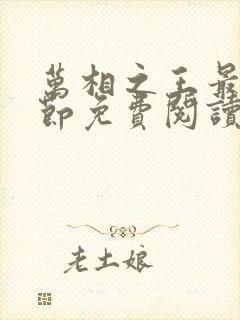 萬相之王最
節免費閱讀
老土娘